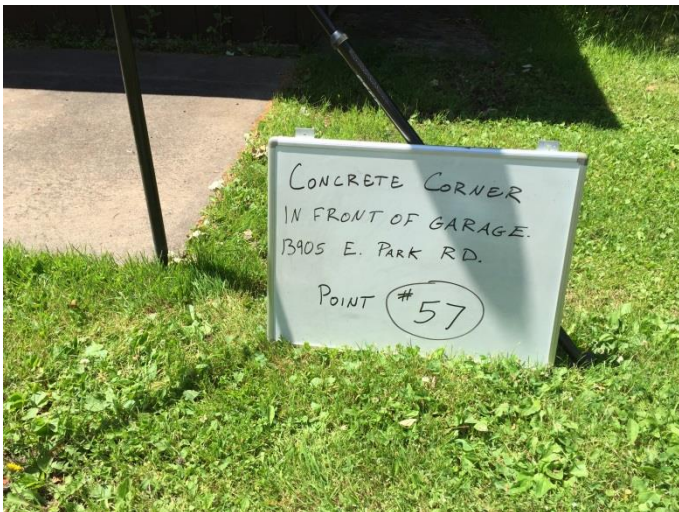 CONCRETE CORNER
IN FRONT OF GARAGE.
B905 E. PARK RD.
POINT #57